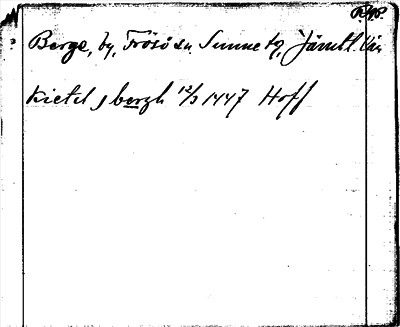 Berge, by, Frösö sn. Sunne tg, Jämtl. län
Kietel j bergh 12/3 1447 Hoff